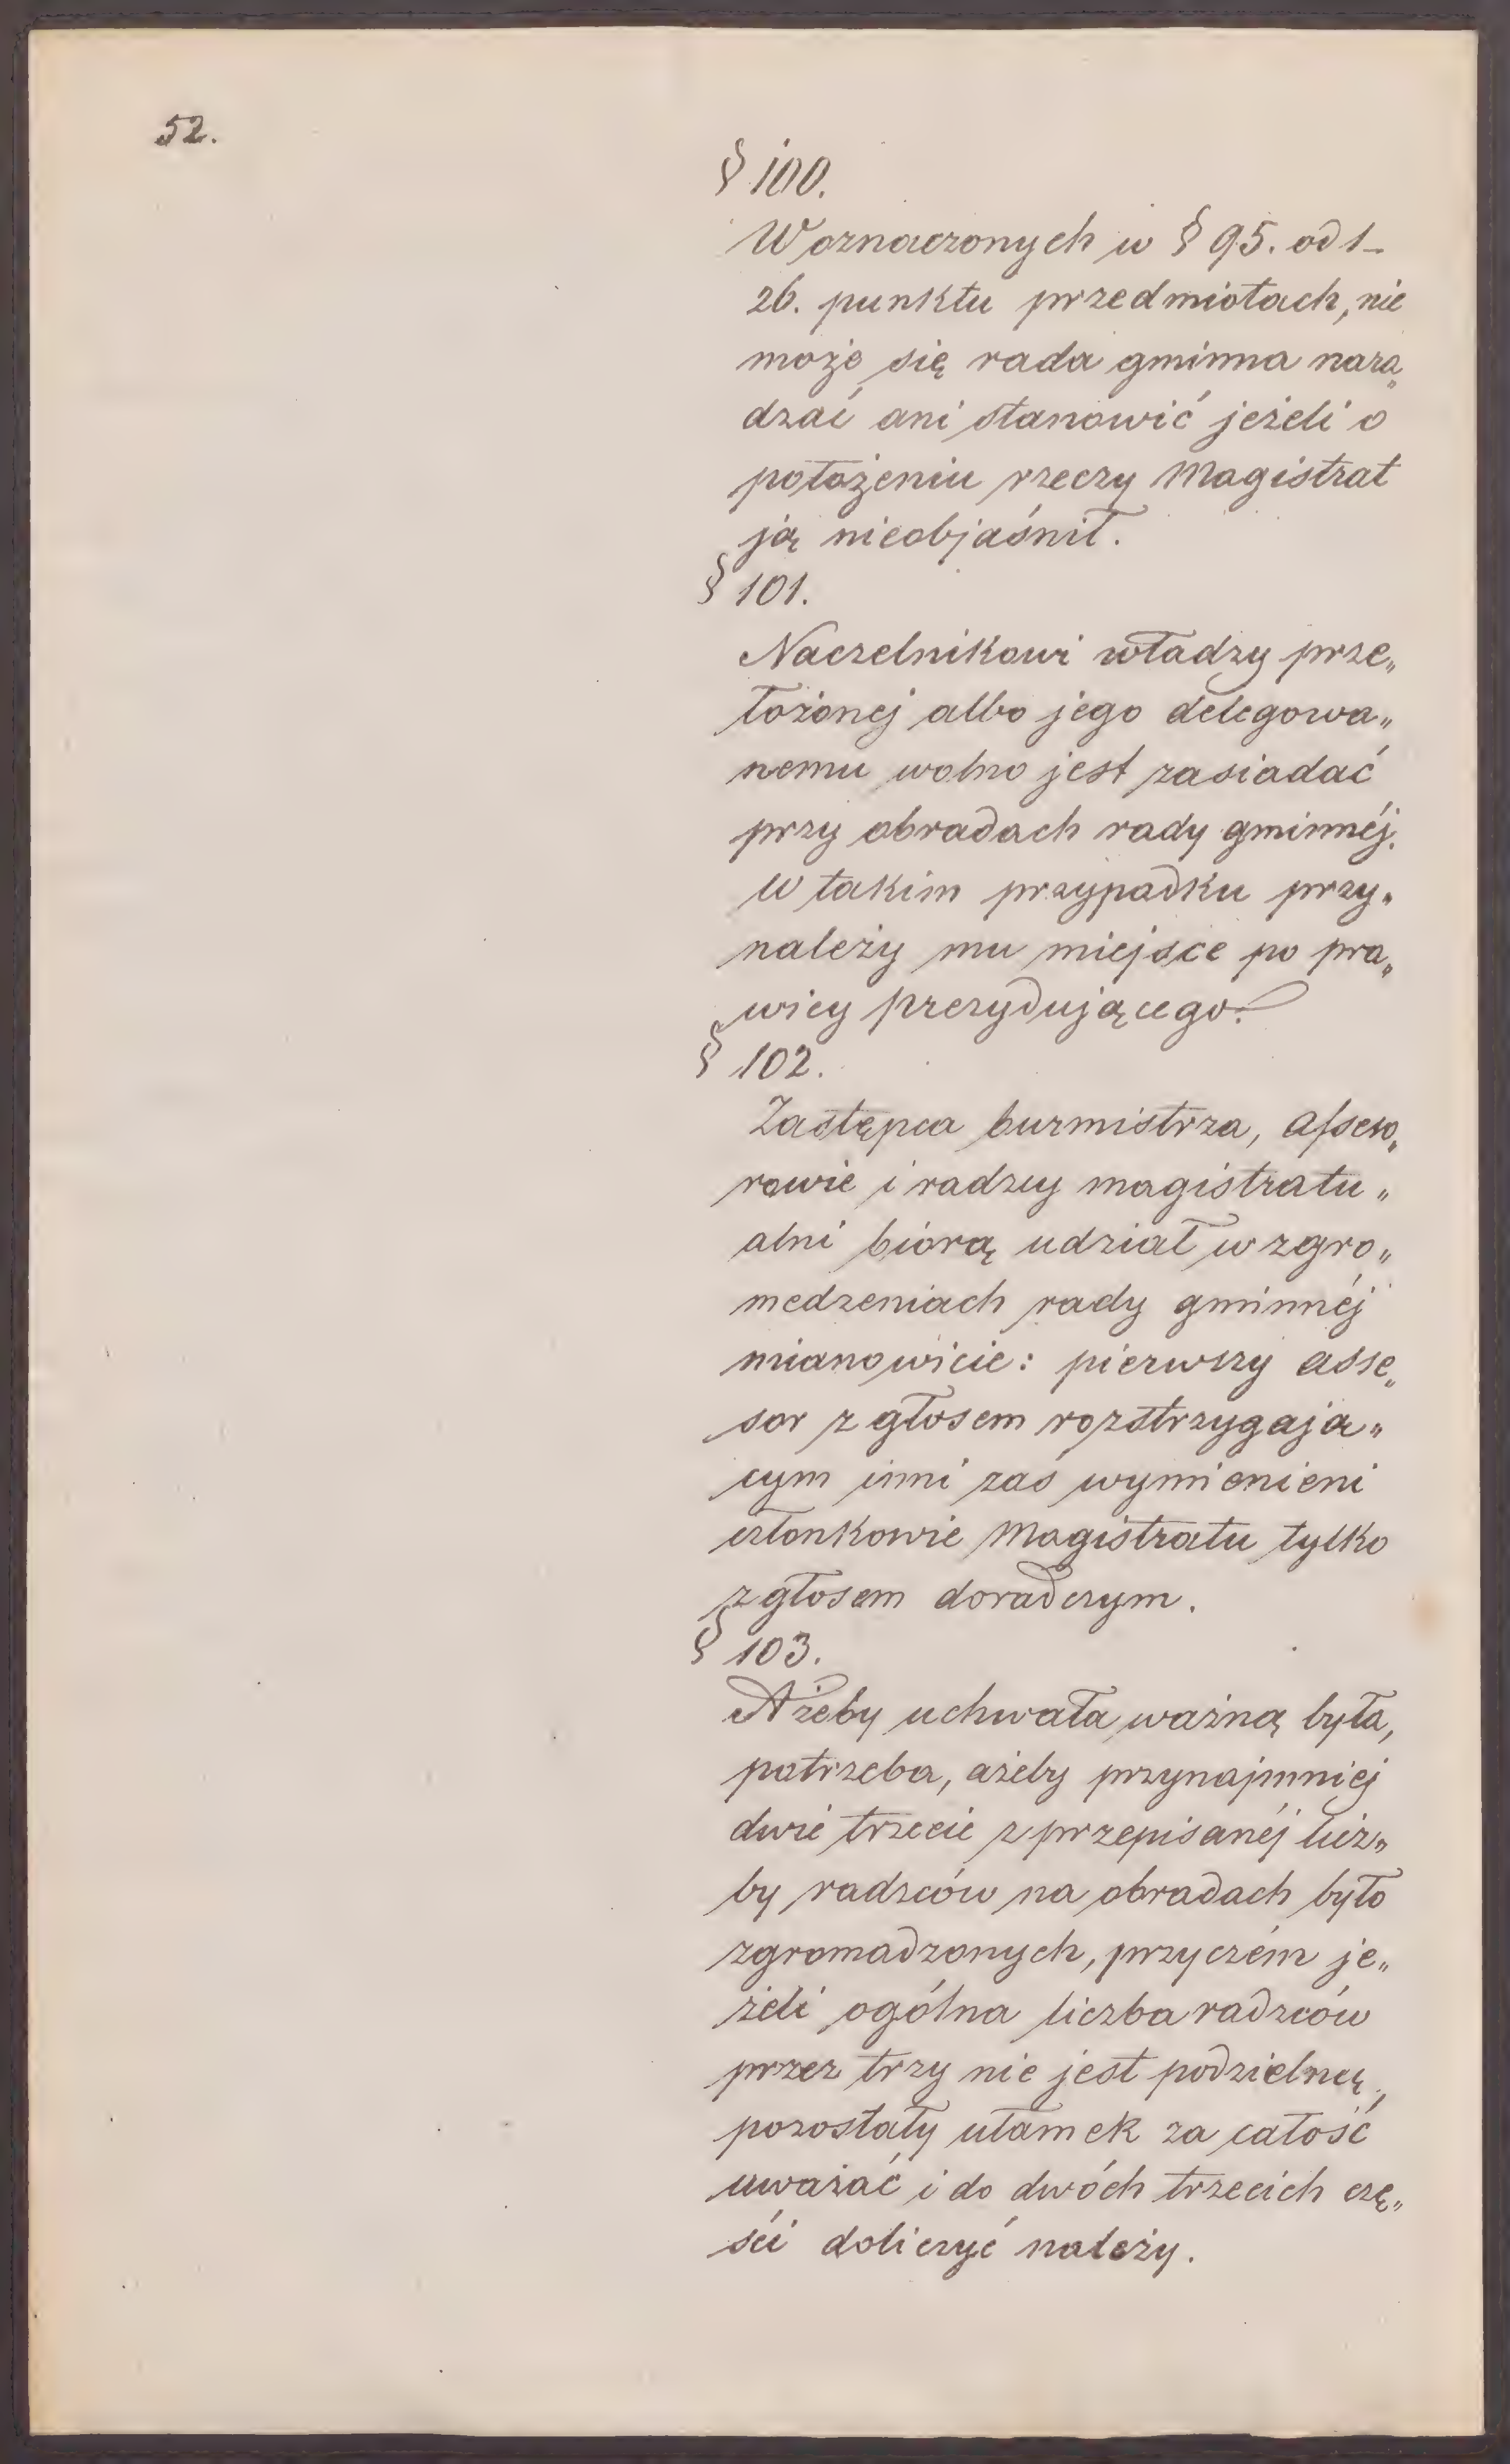 52.
§ 100.
W oznaczonych w § 95. od 1_
26. punktu przedmiotach, nie
może się rada gminna nara„
dzać ani stanowić jeżeli o
położeniu rzeczy Magistrat
ją nieobjaśnił.
§ 101.
Naczelnikowi władzy prze„
łożonej albo jego delegowa„
nemu wolno jest zasiadać
przy obradach rady gminnéj.
W takim przypadku przy„
należy mu miejsce po pra„
wicy prezydującego.
§ 102.
Zastępca burmistrza, Asseso„
rowie i radzcy magistratu„
alni biorą udział w zgro„
medzeniach rady gminnéj
mianowicie: pierwszy asse„
sor z głosem rozstrzygaja„
cym inni zaś wymienieni
członkowie Magistratu tylko
z głosem doradczym.
§ 103.
Ażeby uchwała ważną była,
potrzeba, ażeby przynajmniej
dwie trzecie z przepisanéj licz„
by radzców na obradach było
zgromadzonych, przyczém je„
żeli ogólna liczba radzców
przez trzy nie jest podzielną,
pozostały ułamek za całość
uważać i do dwóch trzecich czę„
ści doliczyć należy.